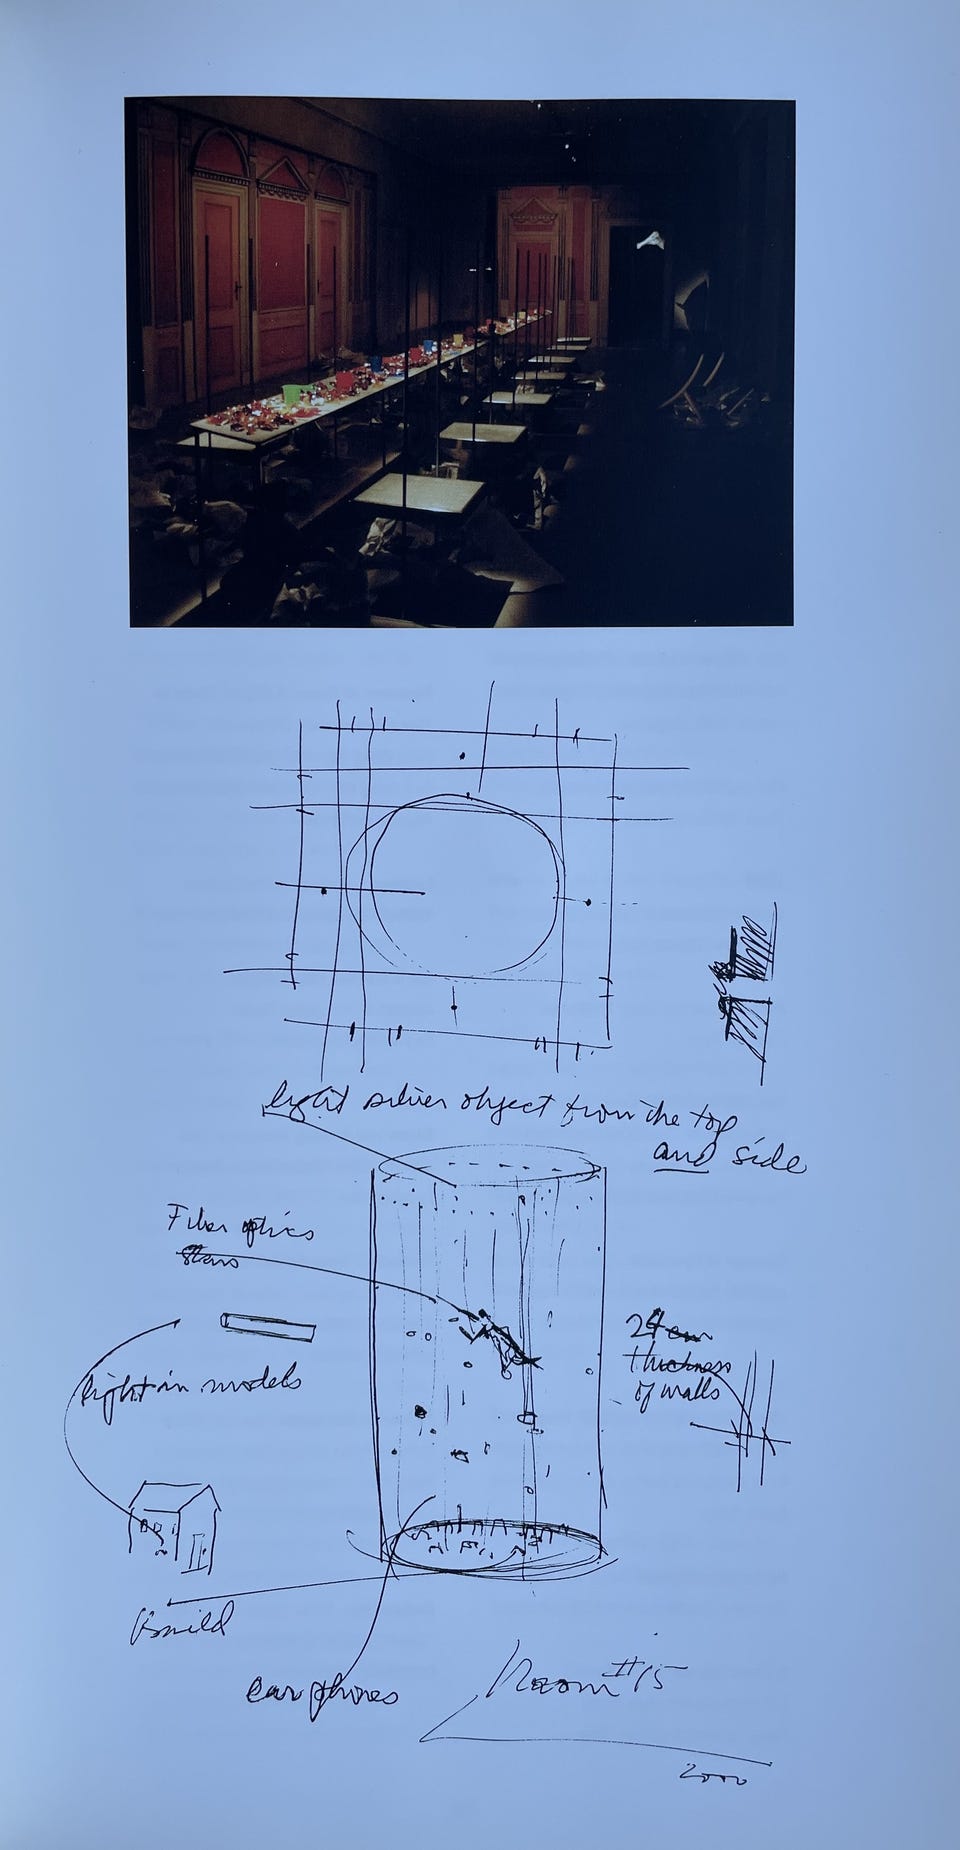 light silver object from the top
and side
Fiber optics
stars
24 cm
thickness
of walls
light in models
Build
earphones
Room #15
2000